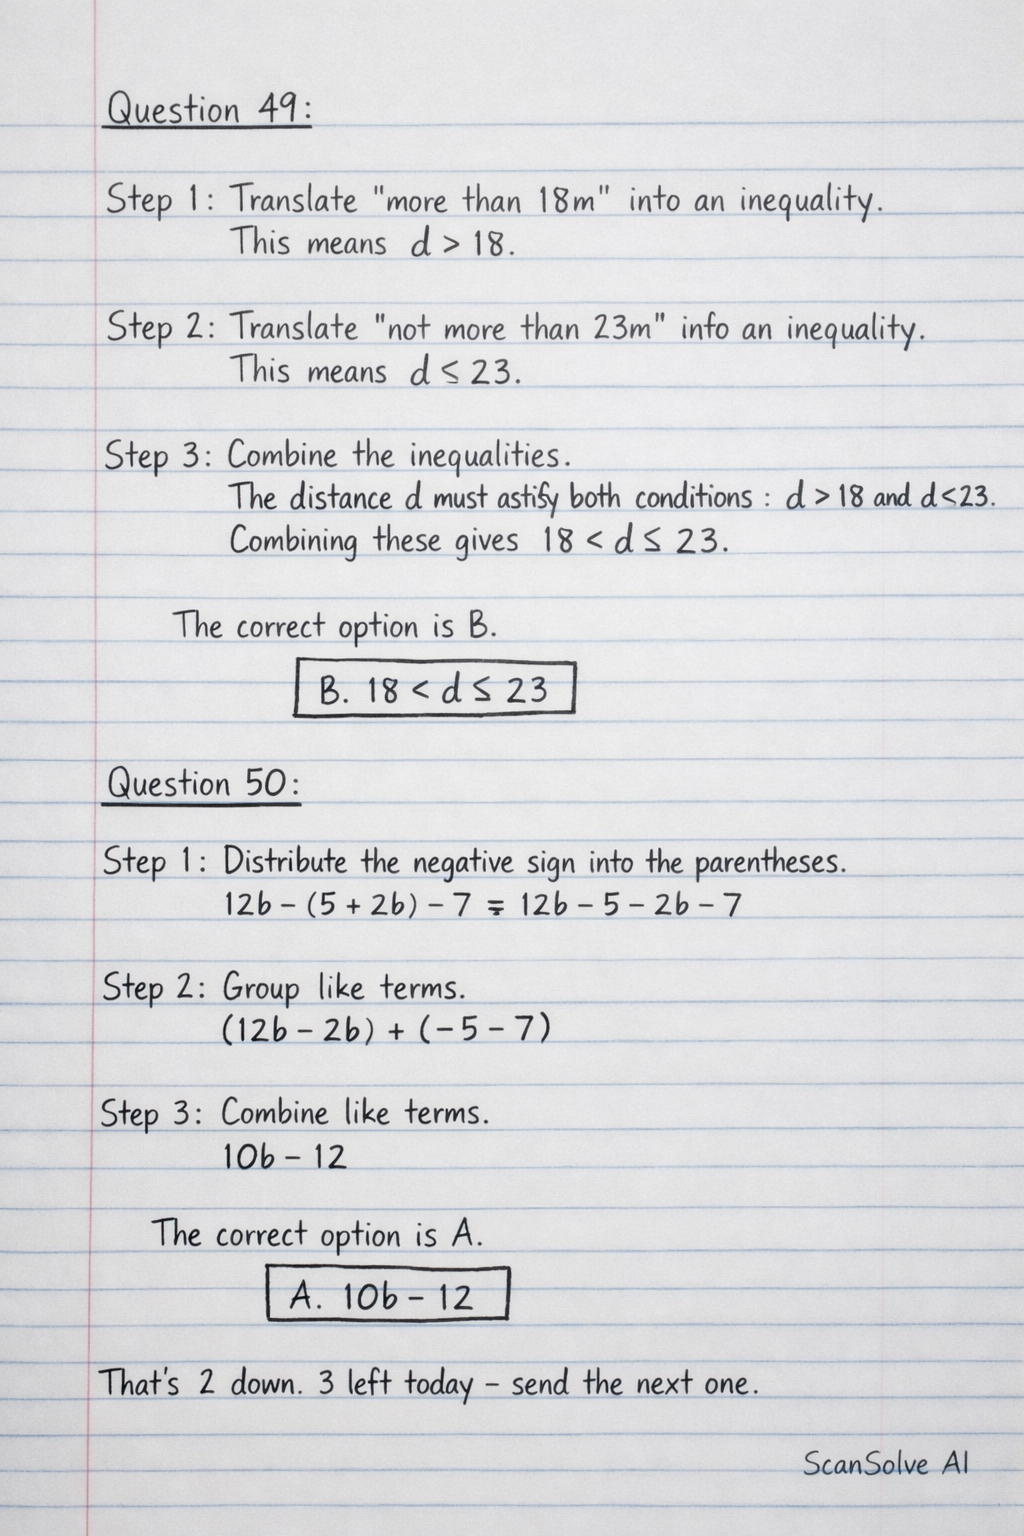 Question 49:
Step 1: Translate "more than 18m" into an inequality.
This means d > 18.
Step 2: Translate "not more than 23m" info an inequality.
This means d ≤ 23.
Step 3: Combine the inequalities.
The distance d must astify both conditions : d > 18 and d<23.
Combining these gives 18 < d ≤ 23.
The correct option is B.
B. 18 < d ≤ 23
Question 50:
Step 1: Distribute the negative sign into the parentheses.
12b - (5 + 2b) - 7 = 12b - 5 - 2b - 7
Step 2: Group like terms.
(12b - 2b) + (-5 - 7)
Step 3: Combine like terms.
10b - 12
The correct option is A.
A. 10b - 12
That's 2 down. 3 left today - send the next one.
ScanSolve AI